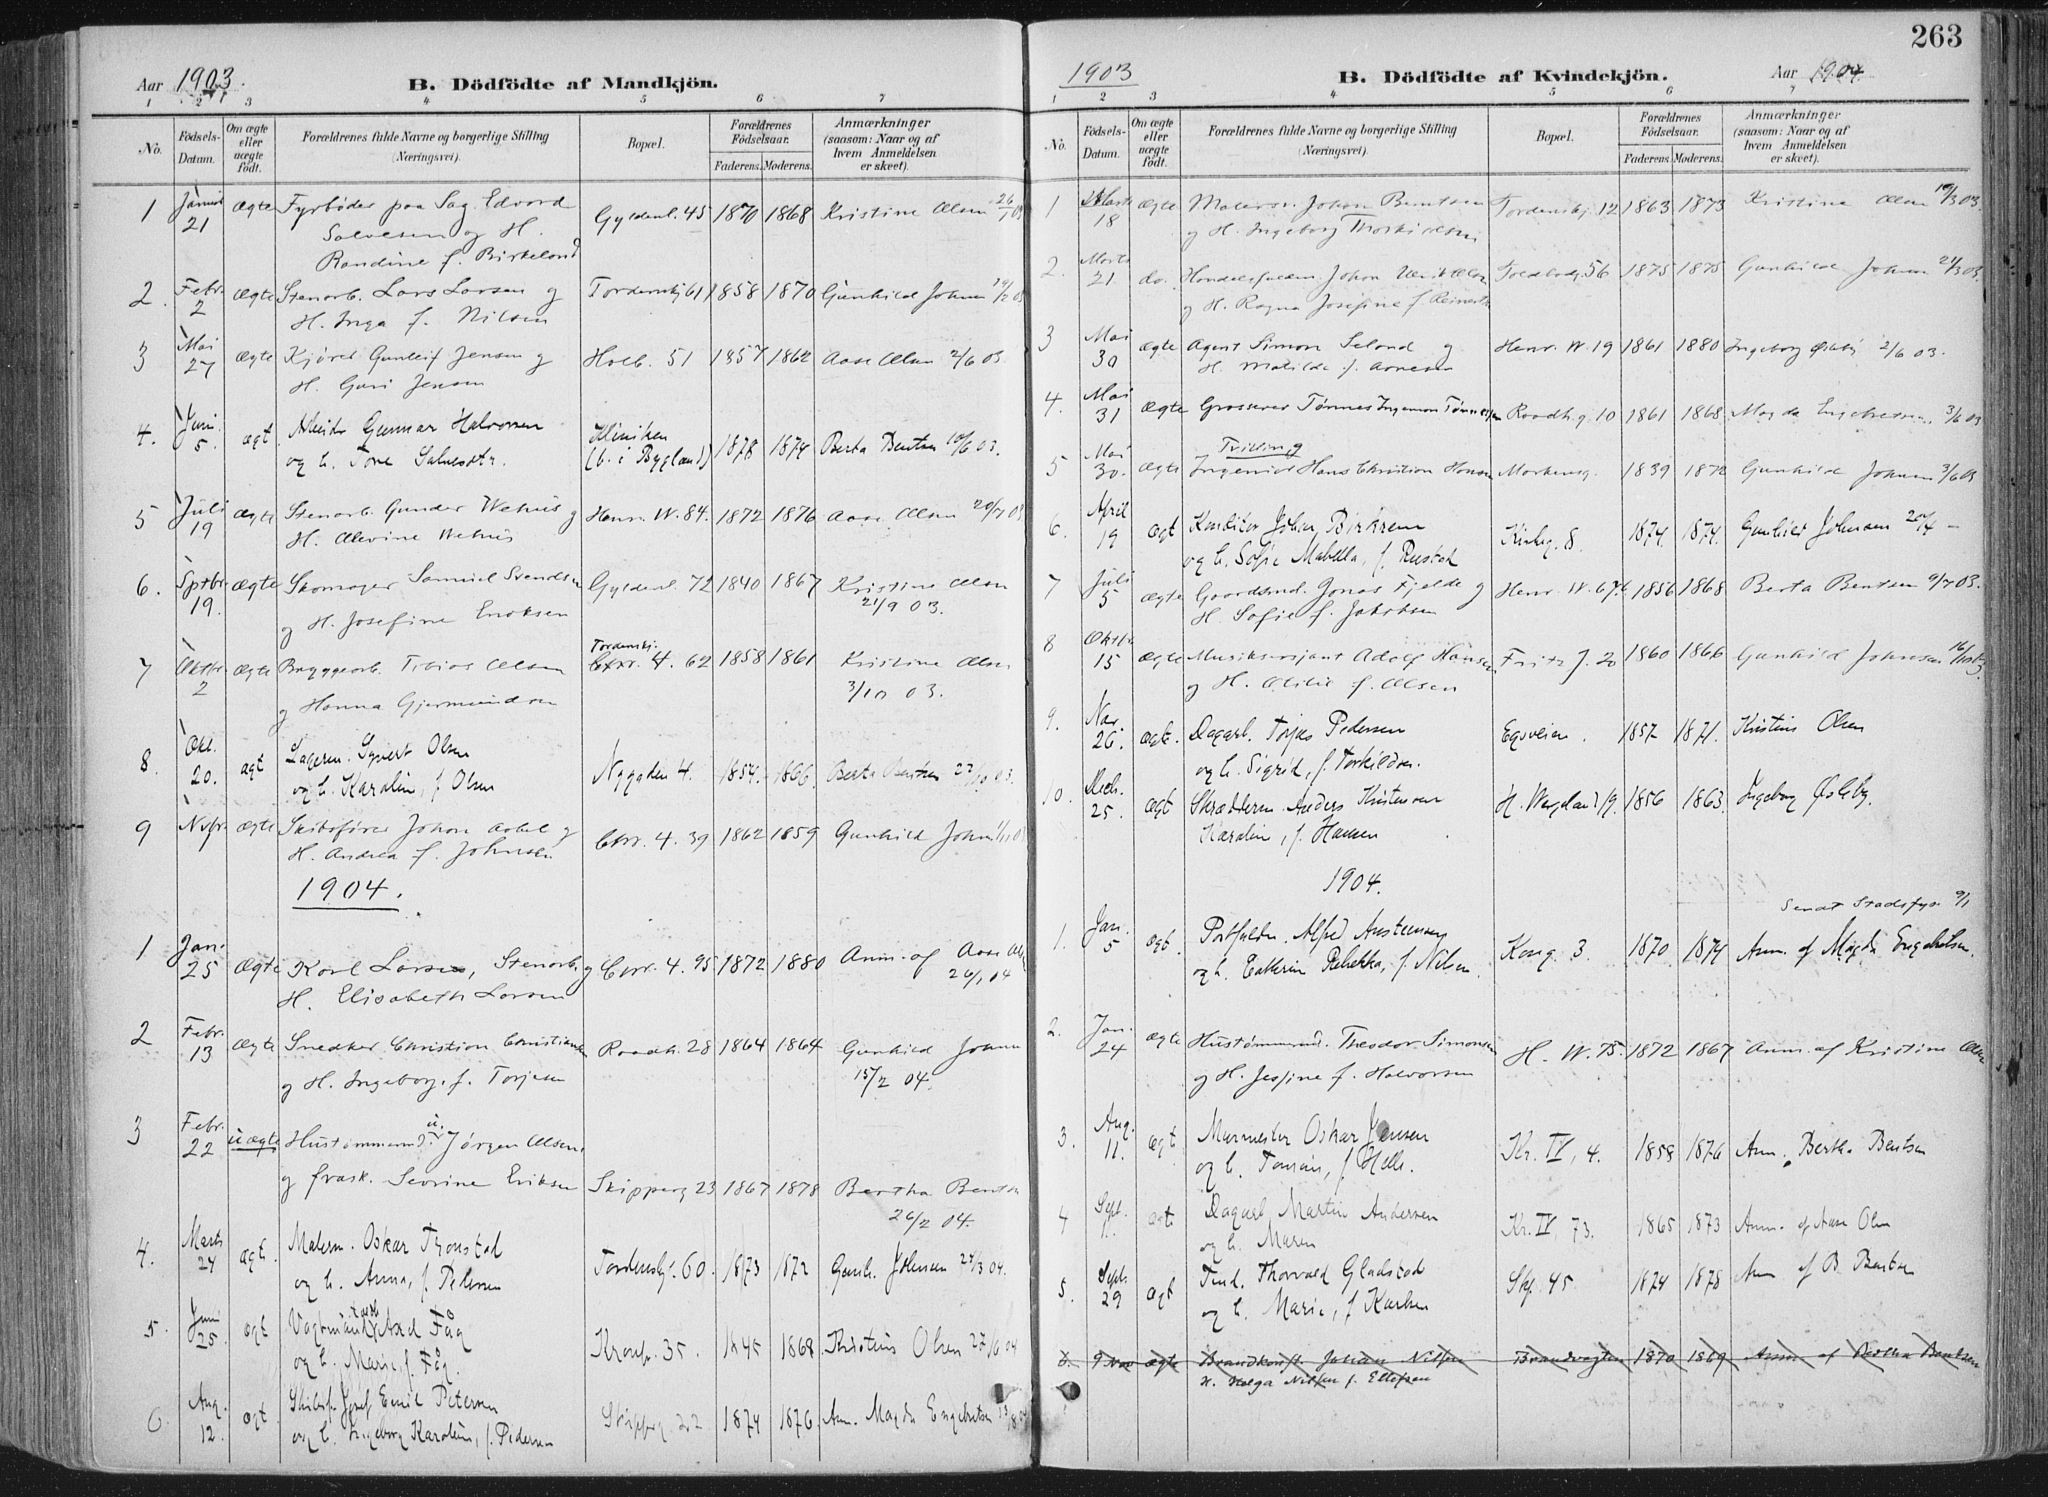 263
Aar 1903.
B. Dödfödte af Mandkjön.
1 2 3 4 5 6 7
No.
Födsels-Datum.
Om ægte eller uægte födt.
Forældrenes fulde Navne og borgerlige Stilling (Næringsvei).
Bopæl.
Forældrenes Födselsaar.
Faderens. Moderens.
Anmærkninger (saasom: Naar og af hvem Anmeldelsen er skeet).
1 Januar 21 ægte Fyrbøder paa Sag. Edvard Gyldenl. 45 1870 1868 Kristine Olsen 26/1 03
Salvesen og H.
Randine f. Birkeland
2. Febr. 2 ægte Stenarb. Lars Larsen og Tordenskj 61 1858 1870 Gunhild Johnsen
H. Inga f. Nilsen
3 Mai 27 ægte Kjører Gunleif Jensen og Holb. 51 1857 1862 Aase Olsen 2/6 03.
H. Guri Jensen
4. Juni 5. ægt Arbeider Gunnar Halvorsen Kliniken 1878 1874 Berta Bentsen 10/6 03.
og h. Tore Salvesdtr. (b. i Bygland)
5 Juli 19 ægte Stenarb. Gunder Wehus og Henr. W. 84. 1872 1876 Aase Olsen 20/7 03
H. Olevine Wehus
6. Sptbr. 19. ægte Skomager Samuel Svendsen Gyldenl. 72 1840 1867 Kristine Olsen
og H. Josefine Enoksen 21/9 03.
7 Oktbr. 2 ægte Bryggearb. Tobias Olsen Tordenskj. 62 1858 1861 Kristine Olsen
og Hanna Gjermundsen 3/10 03.
8. Okt. 20. ægt Lagerm. Syvert Olsen Nygaden 4. 1854. 1866. Berta Bentsen 27/10 03.
og h. Karoline, f. Olsen
9 Nvbr. ægte Skibsfører Johan og Chr. 4. 39 1862 1859 Gunhild Johnsen
H. Andrea f. Johnsen
1904.
1 Jan. 25 ægte Karl Larsen, Stenarb. og Chr. 4. 95 1872 1880 Anm. af Aase Olsen
H. Elisabeth Larsen 26/1 04
2 Febr. 13 ægte Snedker Christian Christiansen Raadh. 28 1864 1864 Gunhild Johnsen
og H. Ingeborg f. Torjesen 15/2 04.
3 Febr. 22 uægte Hustømmermd. u. Jørgen Olsen,
og frask. Severine Eriksen Skipperg 23 1867 1878 Bertha Bentsen
26/2 04.
4. Marts 24 ægt. Malerm. Oskar Tjonstad Tordenskj. 60. 1873 1872 Gunh. Johnsen 24/3 04.
og h. Anna, f. Pedersen
5. Juni 25. ægt Vagtmand Axel Fåg Kronp. 35. 1845 1868 Kristine Olsen 27/6 04
og h. Marie, f. Fåg.
6. Aug. 12. ægt Skibsf. Josef Emil Petersen Skipperg 22 1874 1876. Anm. Magda Engebretsen
og h. Ingeborg Karoline, f. Pedersen
1903
B. Dödfödte af Kvindekjön.
Aar 1904
1 2 3 4 5 6 7
No.
Födsels-Datum.
Om ægte eller uægte födt.
Forældrenes fulde Navne og borgerlige Stilling (Næringsvei).
Bopæl.
Forældrenes Födselsaar.
Faderens. Moderens.
Anmærkninger (saasom: Naar og af hvem Anmeldelsen er skeet).
1 Marts 18 ægte Malersv. Johan Berntsen Tordenskj. 12 1863 1873 Kristine Olsen 19/3 03.
og H. Ingeborg Thorkildsen
2. Marts 21 do. Handelsfuldm. Johan Toldbodg. 56 1875 1875 Gunhild Johnsen 24/3 03.
og H. Ragna Josefine f.
3 Mai 30 ægte Agent Simon Seland og Henr. W. 19 1861 1880 Ingeborg Østeby 2/6 03.
H. Matilde f. Arnesen
4. Mai 31 ægte Grosserer Tønnes Ingeman Tønnessen Raadh.g. 10 1861 1868 Magda Engebretsen 3/6 03
Tvilling
5 Mai 30. ægte Ingeniør Hans Christian Hansen Markensg. 1839 1872 Gunhild Johnsen 3/6 03
6. April 19 ægt Konditor Johan Birkrem Kirkeg. 8. 1874. 1874. Gunhild Johnsen 20/4 —
og h. Sofie Mabella, f. Rustad
7 Juli 5 ægte Gaardsmd. Jonas Fjelde og Henr. W. 67. 1856 1868 Berta Bentsen 9/7 03.
H. Sofie f. Jakobsen
8 Oktbr. 15 ægte Musiksersjant Adolf Hansen Fritz J. 20 1860 1866 Gunhild Johnsen
og H. Otilie f. Olsen
9. Nov. 26. ægte. Dagarb. Torjus Pedersen Egsveien. 1857 1871. Kristine Olsen
og h. Sigrid, f. Torkildsen.
10. Decb. 25. ægt Skrædderm. Anders Kristensen H. Wergeland 19. 1856 1863. Ingeborg Østeby.
Karoline, f. Hansen
1904.
Sendt Stadsfys. 9/1
1. Jan. 5 ægt. Postfuldm. Alfred Austensen Kong. 3. 1870. 1874 Anm. af Magda Engebretsen.
og h. Cathrine Rebekka, f. Nilsen.
2. Jan. 24 ægte Hustømmermd. Theodor Simonsen H. W. 75. 1872 1867 Anm. af Kristine Olsen
og H. Jessine f. Halvorsen
3. Aug. 11. ægt Murmester Oskar Jensen Kr. IV, 4. 1858 1876 Anm. Bertha Bentsen
og h. Tomine, f. Helle.
4 Sept. 1. ægt. Dagarb. Martin Andersen Kr. IV, 73. 1865 1873 Anm. af Aase Olsen
og h. Maren
5. Sept. 29 ægt Tind. Thorvald Gladstad Skp. 45 1874 1878 Anm af B. Bentsen
og h. Marie, f. Karlsen
6. 9 Nov ægte Brandkonst. Johan Nilsen Brandvagten 1870 1869 Anm af Bertha Bentsen
H. Helga Nilsen f. Ellefsen